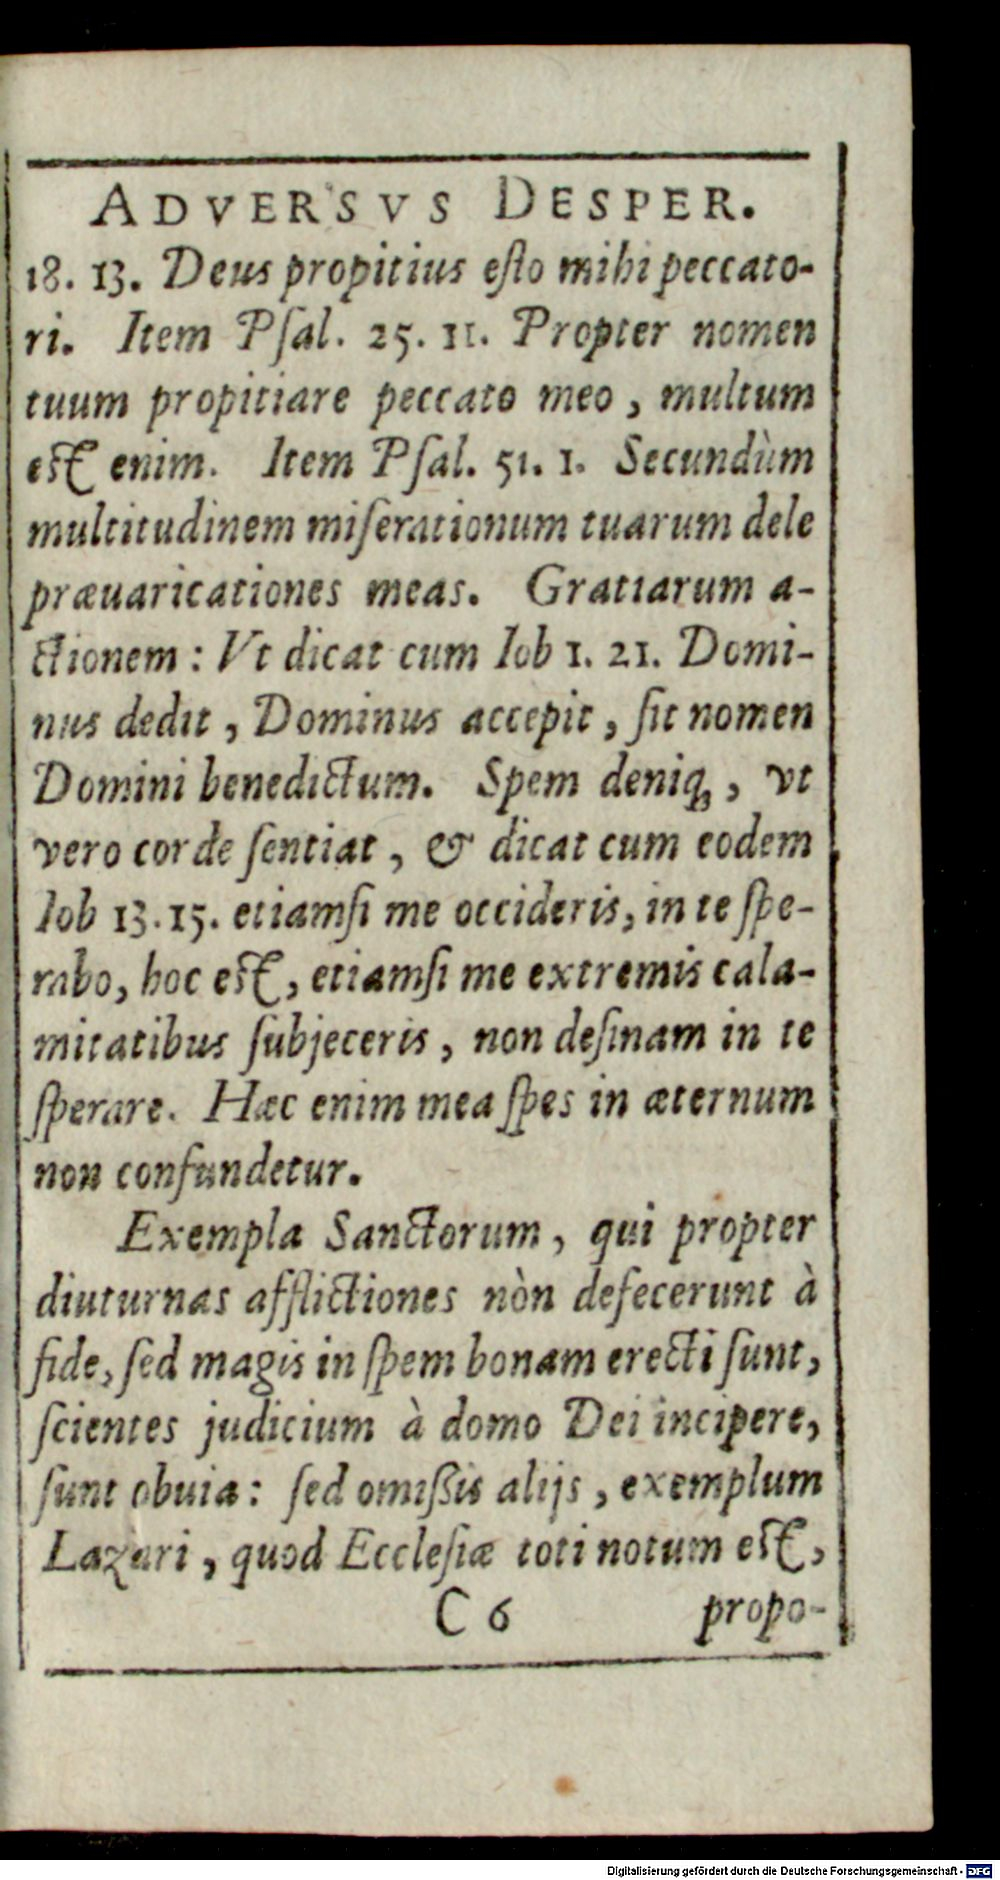 ADVERSVS DESPER.
18. 13. Deus propitius eſto mihi peccato-
ri. Item Pſal. 25. 11. Propter nomen
tuum propitiare peccato meo, multum
eſt enim. Item Pſal. 51. 1. Secundùm
multitudinem miſerationum tuarum dele
præuaricationes meas. Gratiarum a-
ctionem: Vt dicat cum Iob 1. 21. Domi-
nus dedit, Dominus accepit, ſit nomen
Domini benedictum. Spem deniq₃, vt
vero corde ſentiat, & dicat cum eodem
Iob 13. 15. etiamſi me occideris, in te ſpe-
rabo, hoc eſt, etiamſi me extremis cala-
mitatibus ſubjeceris, non deſinam in te
ſperare. Hæc enim mea ſpes in æternum
non confundetur.
Exempla Sanctorum, qui propter
diuturnas afflictiones nòn defecerunt à
fide, ſed magis in ſpem bonam erecti ſunt,
ſcientes judicium à domo Dei incipere,
ſunt obuia: ſed omiſsis alijs, exemplum
Lazari, quod Eccleſiæ toti notum eſt,
C 6 propo-
Digitalisierung gefördert durch die Deutsche Forschungsgemeinschaft - DFG